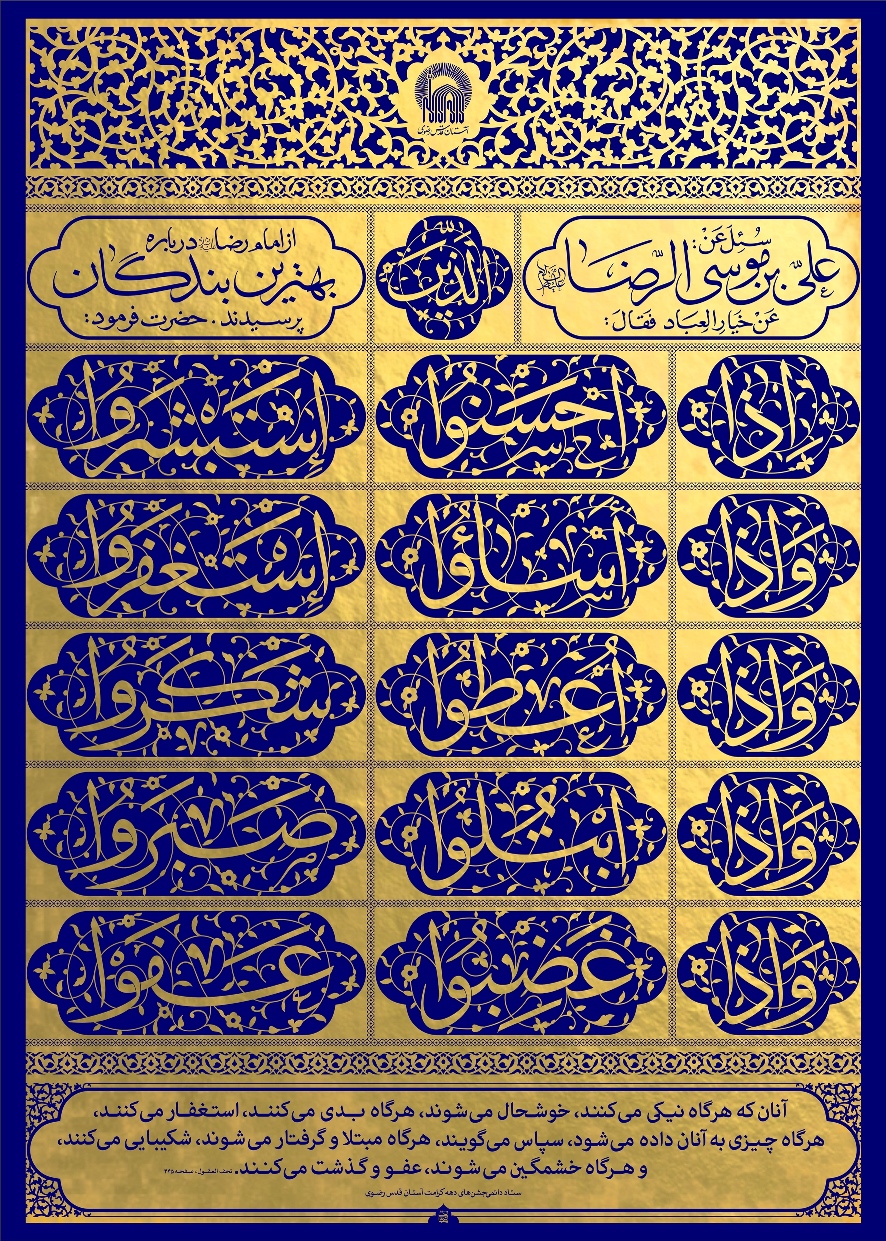 آستان قدس رضوی
سُئِلَ عَنْ:
علیّ بن موسی الرّضا علیه السلام
عَنْ خیارِ العِباد فَقالَ:
الَّذینَ
از امام رضا علیه السلام درباره
بهترین بندگان
پرسیدند. حضرت فرمود:
إِذا أَحسَنُوا إِستَبشَرُوا
وَإِذا أَساؤُا إِستَغفَرُوا
وَإِذا أُعطُوا شَکَرُوا
وَإِذا ابْتُلُوا صَبَرُوا
وَإِذا غَضِبُوا عَفَوْا
آنان که هرگاه نیکی می‌کنند، خوشحال می‌شوند، هرگاه بدی می‌کنند، استغفار می‌کنند،
هرگاه چیزی به آنان داده می‌شود، سپاس می‌گویند، هرگاه مبتلا و گرفتار می‌شوند، شکیبایی می‌کنند،
و هرگاه خشمگین می‌شوند، عفو و گذشت می‌کنند. تحف العقول، صفحه ۴۴۵
ستاد دائمی جشن‌های دهه کرامت آستان قدس رضوی